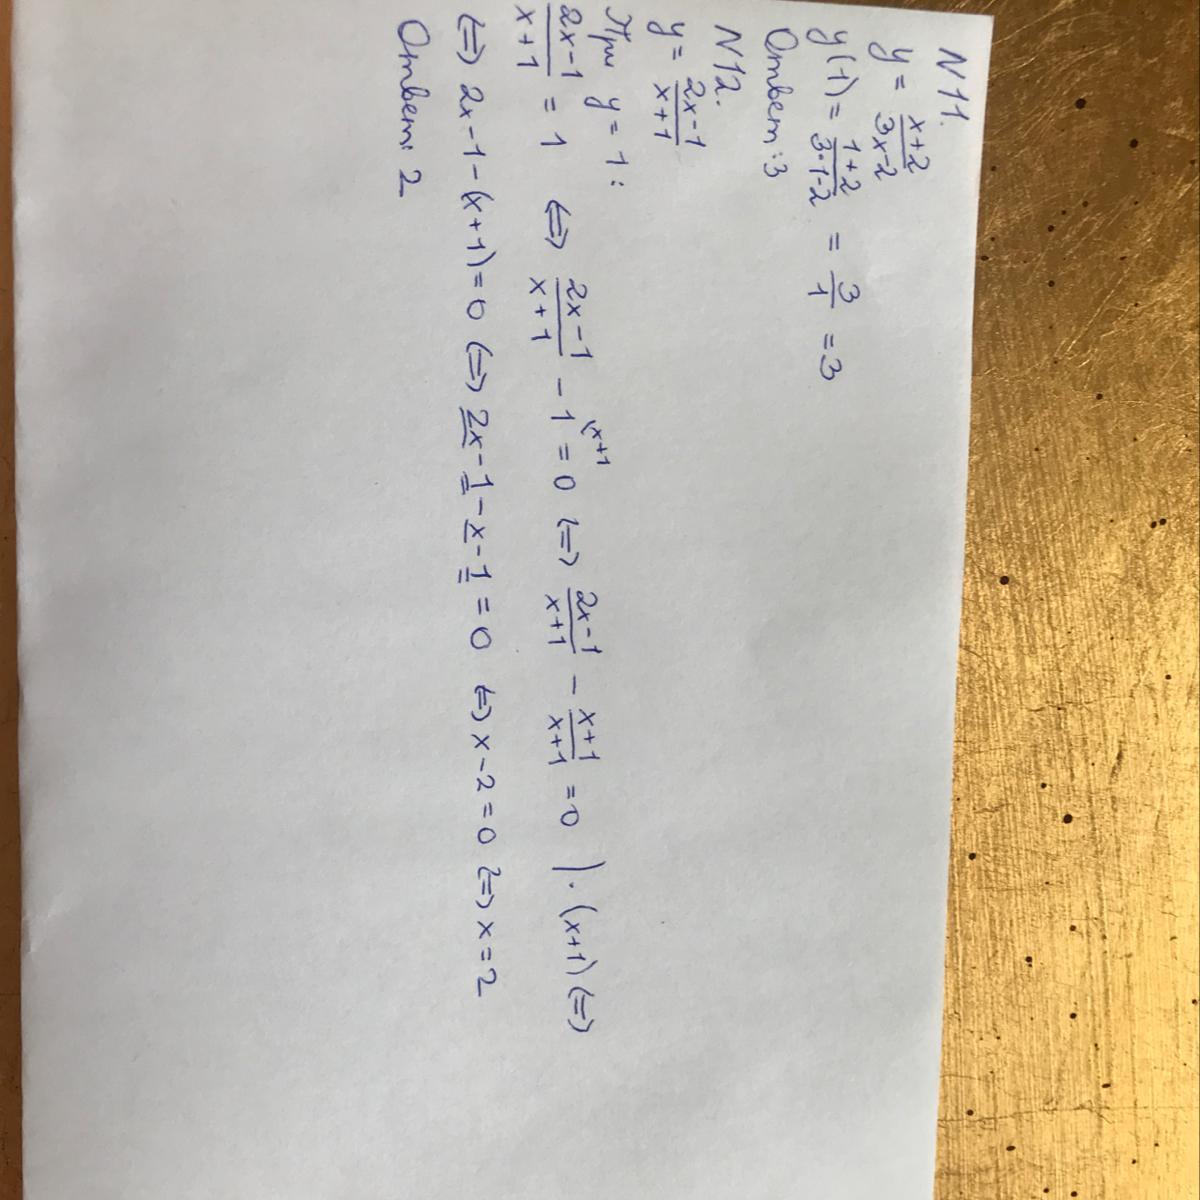 N11.
y = x+2/3x-2
y(1) = 1+2/3·1-2 = 3/1 =3
Ответ:3
N12.
y = 2x-1/x+1
При y = 1:
2x-1/x+1 = 1 <=> 2x-1/x+1 - 1 (x+1 = 0 <=> 2x-1/x+1 - x+1/x+1 = 0 | · (x+1) <=>
<=> 2x-1-(x+1)=0 <=> 2x-1-x-1=0 <=> x-2=0 <=> x=2
Ответ: 2